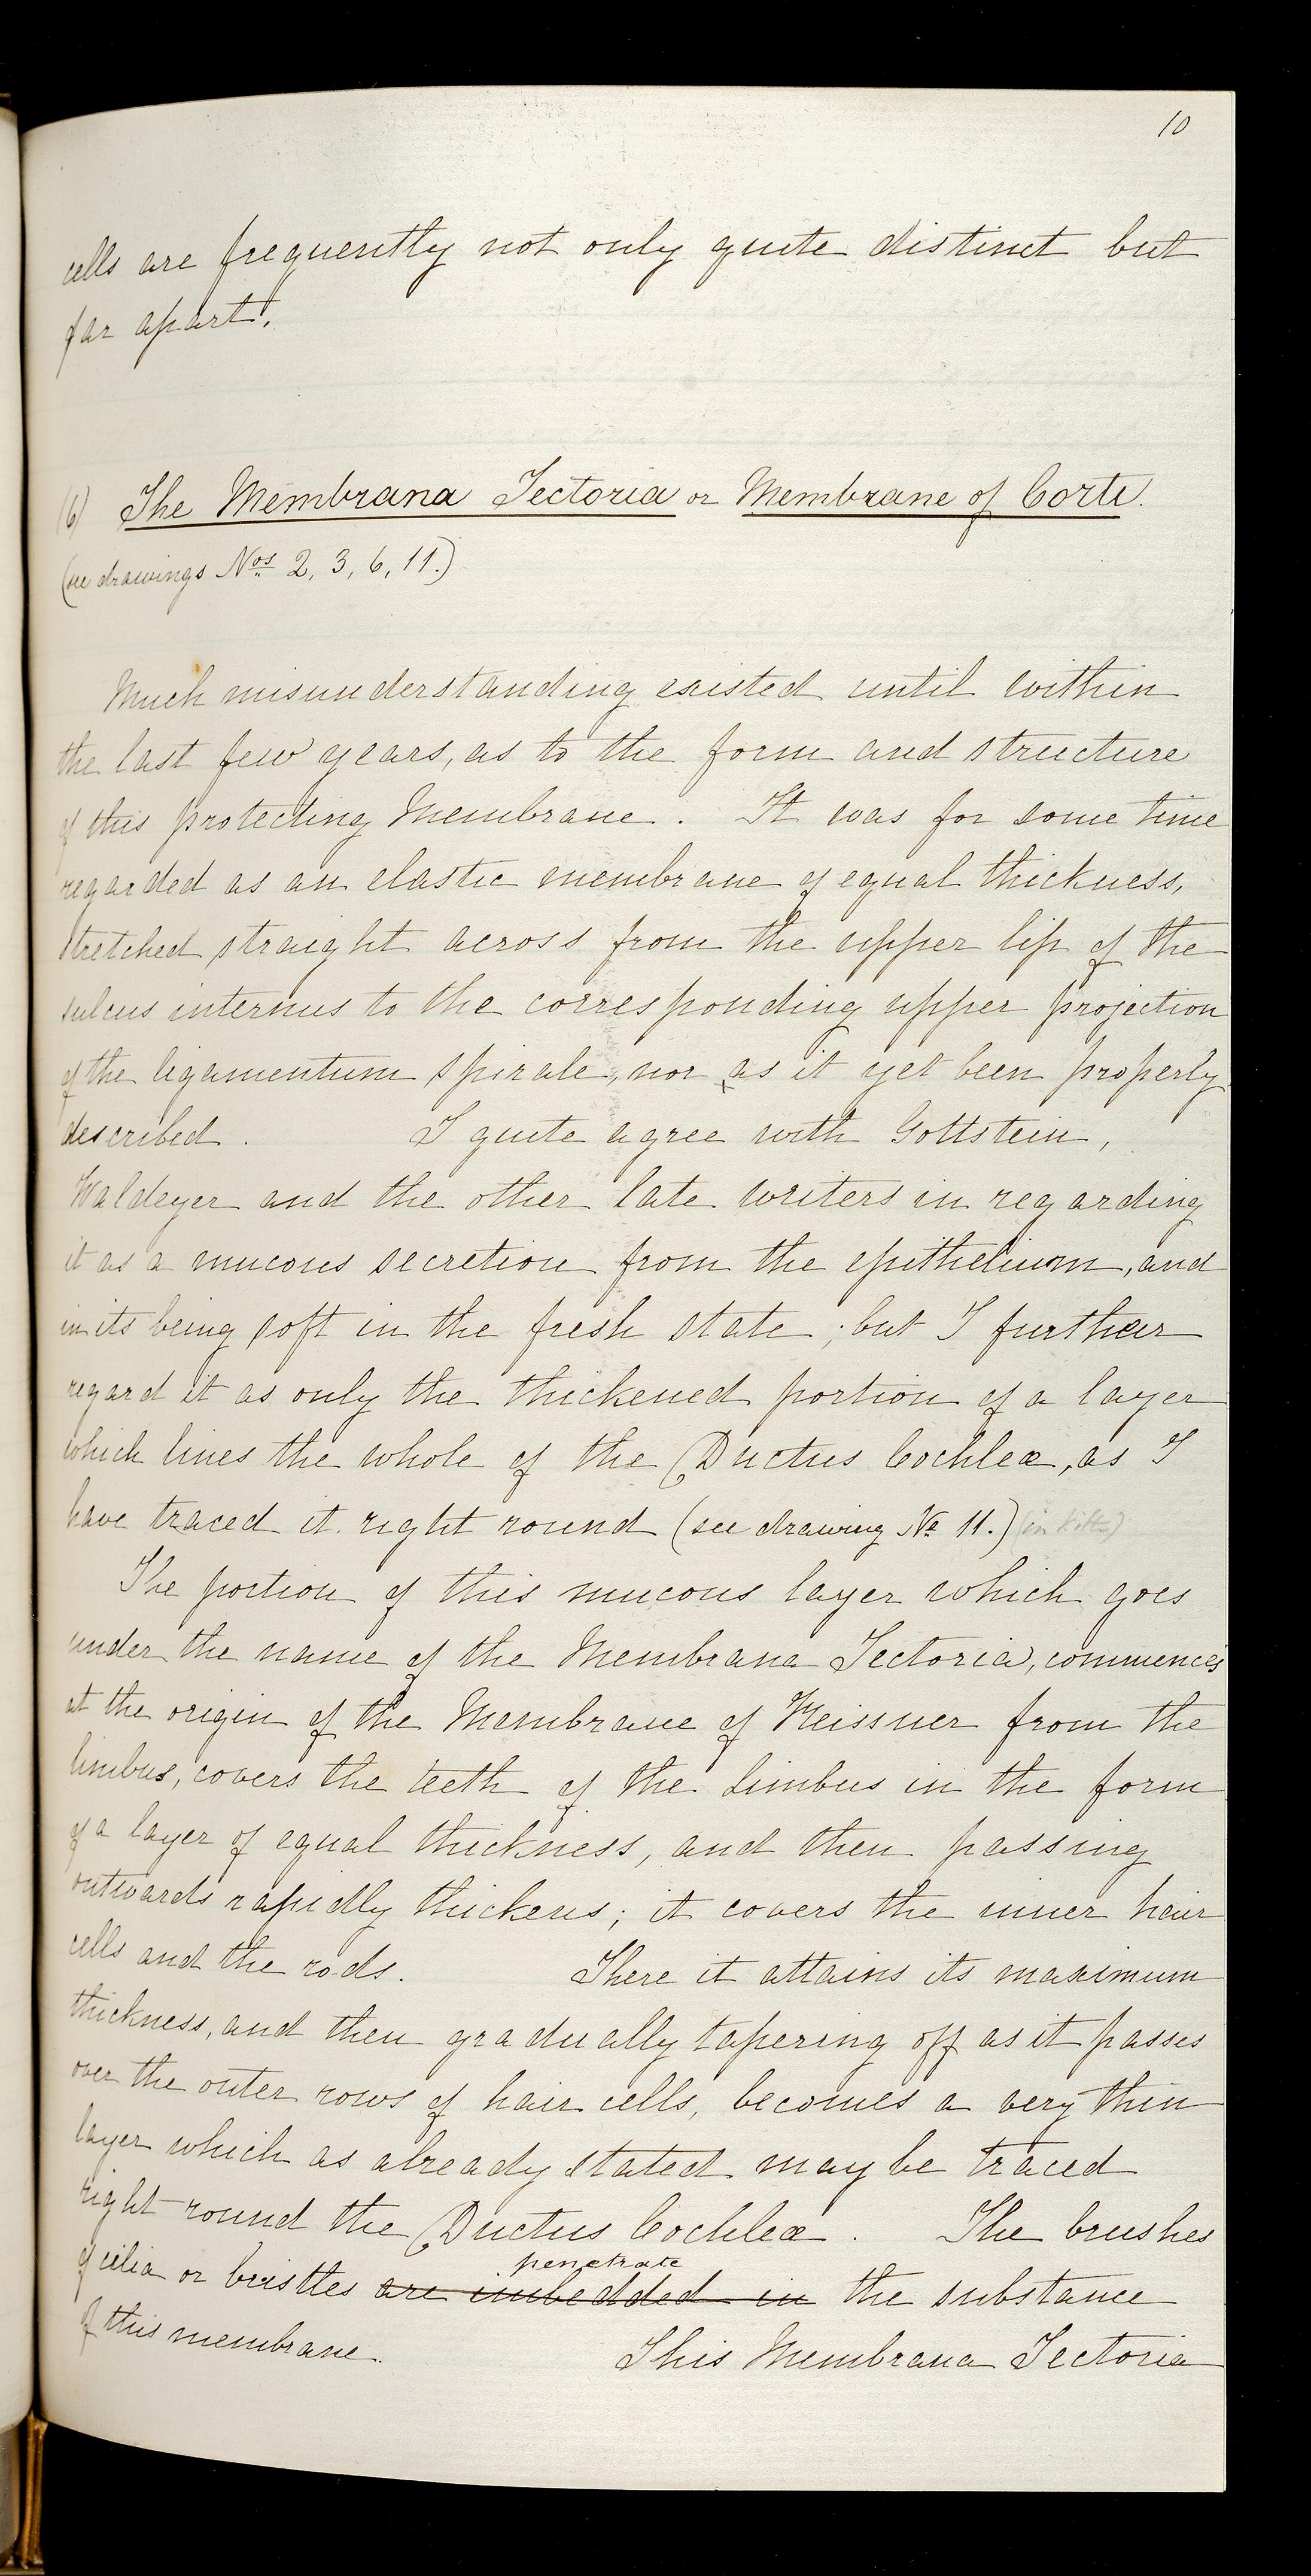 10
cells are frequently not only quite distinct but
far apart.
(6) The Membrana Tectoria or Membrane of Corti.
(see drawings Nos. 2, 3, 6, 11.)
Much misunderstanding existed until within
the last few years, as to the form and structure
of this protecting Membrane. It was for some time
regarded as an elastic membrane of equal thickness,
stretched straight across from the upper lip of the
sulcus internus to the corresponding upper projection
of the ligamentum spirale, nor as it yet been properly
described. I quite agree with Gottstein,
Waldeyer and the other late writers in regarding
it as a mucous secretion from the epithelium, and
in its being soft in the fresh state; but I further
regard it as only the thickened portion of a layer
which lines the whole of the Ductus Cochleæ, as I
have traced it right round (see drawing No. 11.)
The portion of this mucous layer which goes
under the name of the Membrana Tectoria, commences
at the origin of the Membrane of Reissner from the
limbus, covers the teeth of the Limbus in the form
of a layer of equal thickness, and then passing
outwards rapidly thickens; it covers the inner hair
cells and the rods. There it attains its maximum
thickness, and then gradually tapering off as it passes
over the outer rows of hair cells, becomes a very thin
layer which as already stated may be traced
right round the Ductus Cochleæ. The brushes
penetrate
of cilia or bristles are imbedded in the substance
of this membrane. This Membrana Tectoria